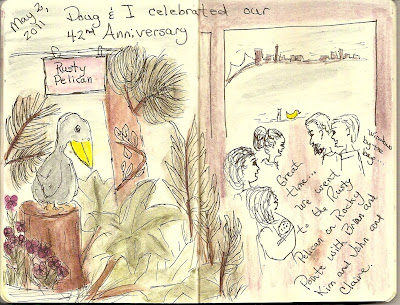 May 2,
2011
Doug & I celebrated our
42nd Anniversary
Rusty
Pelican
Great
time...
We went
to the Rusty
Pelican on Rocky
Pointe with Brian and
Kim and John and
Claire.